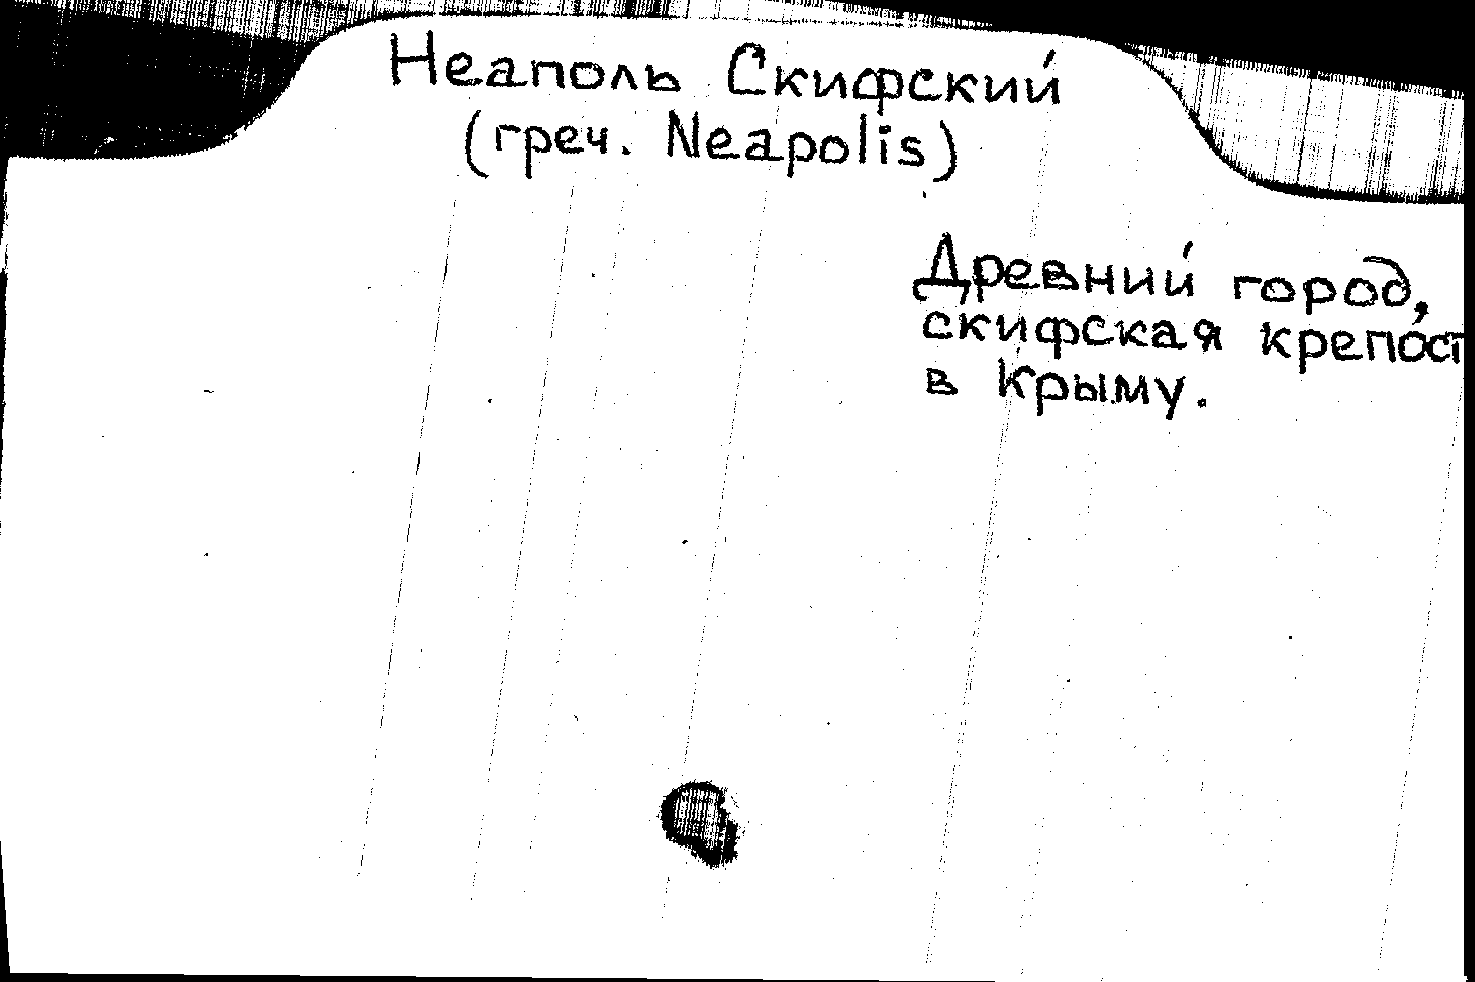 Неаполь Скифский
(греч. Neapolis)
Древний город,
скифская крепост
в Крыму.